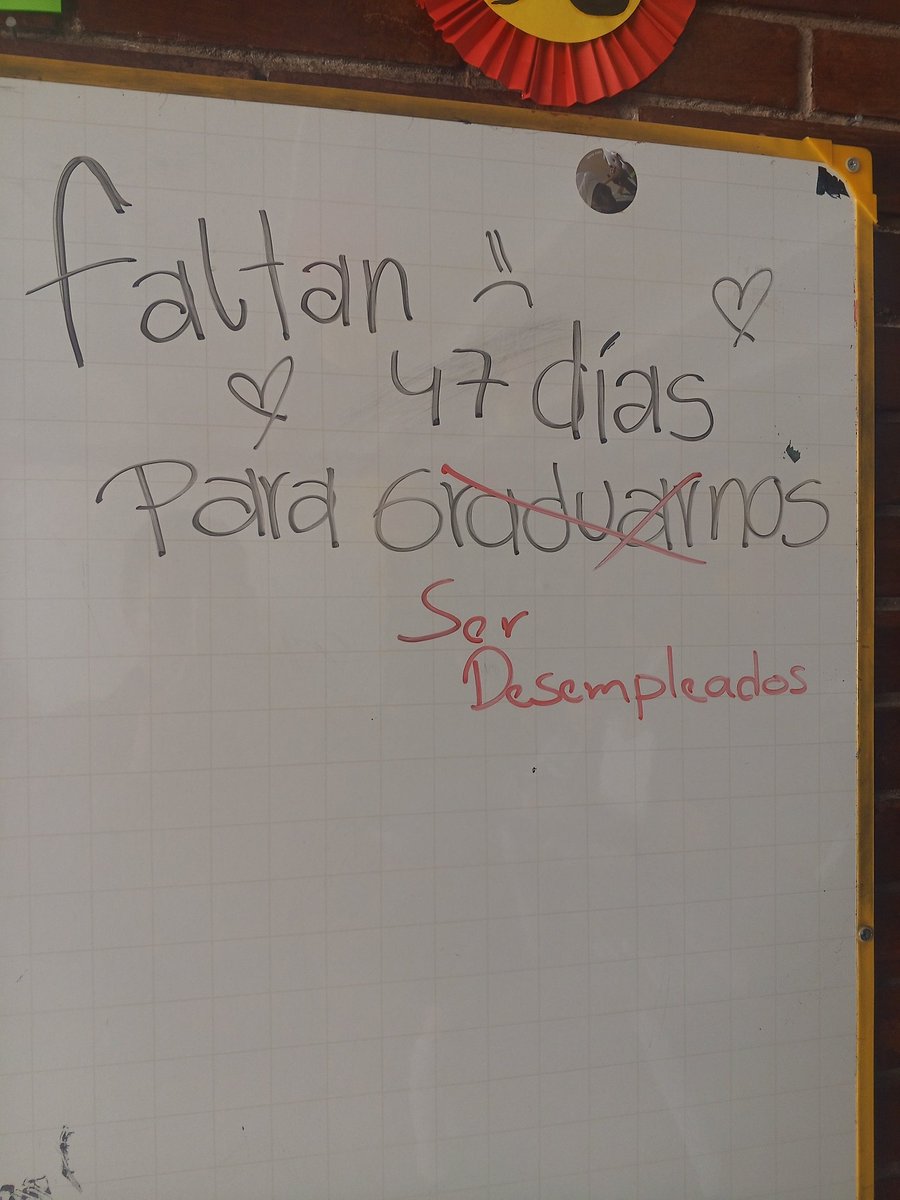 faltan
47 días
Para Graduarnos
Ser
Desempleados